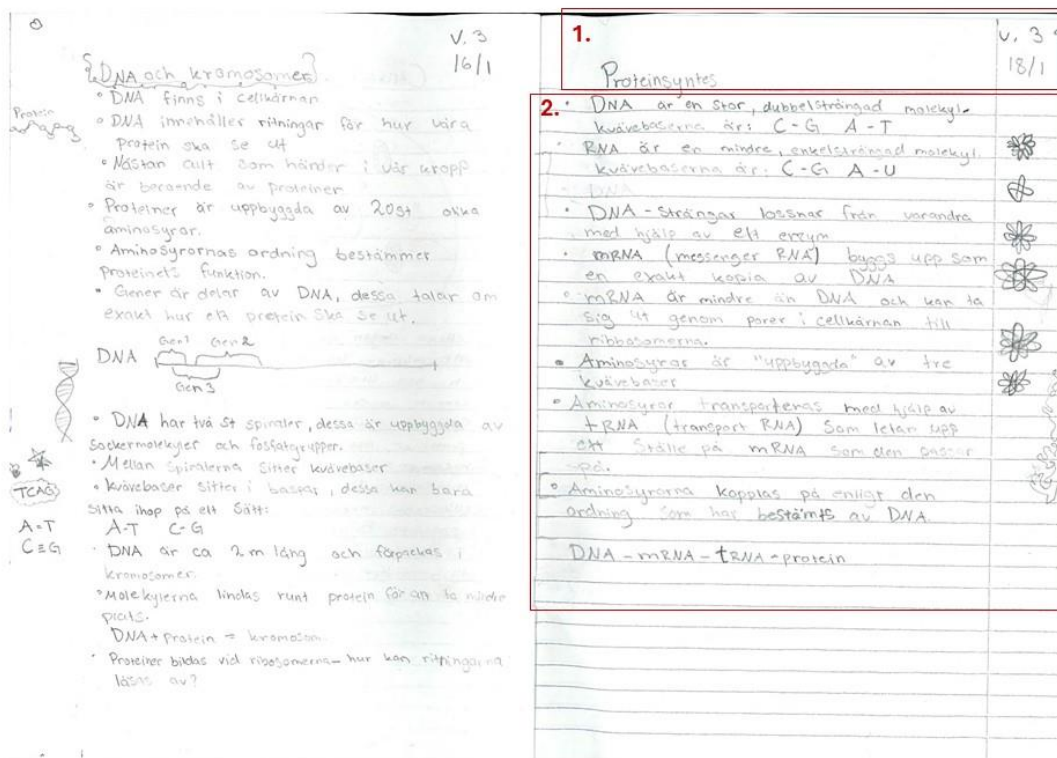 V. 3
16/1
DNA och kromosomer
• DNA finns i cellkärnan
• DNA innehåller ritningar för hur våra
protein ska se ut
• Nästan allt som händer i vår kropp
är beroende av proteiner
• Proteiner är uppbyggda av 20st olika
aminosyror.
• Aminosyrornas ordning bestämmer
proteinets funktion.
• Gener är delar av DNA, dessa talar om
exakt hur ett protein ska se ut.
Protein
DNA
Gen1 Gen2
Gen3
• DNA har två st spiraler, dessa är uppbyggda av
sockermolekyler och fosfatgrupper.
• Mellan spiralerna sitter kvävebaser
• Kvävebaser sitter i baspar, dessa kan bara
sitta ihop på ett sätt:
A-T C-G
TCAG
A=T
C≡G
• DNA är ca 2m lång och förpackas i
kromosomer.
• Molekylerna lindas runt protein för att ta mindre
plats.
DNA + protein = kromosom
• Proteiner bildas vid ribosomerna - hur kan ritningarna
läsas av?
1.
v. 3
18/1
Proteinsyntes
2.
• DNA är en stor, dubbelsträngad molekyl.
kvävebaserna är: C-G A-T
• RNA är en mindre, enkelsträngad molekyl.
kvävebaserna är: C-G A-U
DNA
• DNA-strängar lossnar från varandra
med hjälp av ett enzym
• mRNA (messenger RNA) byggs upp som
en exakt kopia av DNA
• mRNA är mindre än DNA och kan ta
sig ut genom porer i cellkärnan till
ribbosomerna.
• Aminosyror är "uppbyggda" av tre
kvävebaser
• Aminosyror transporteras med hjälp av
tRNA (transport RNA) som letar upp
ett ställe på mRNA som den passar
på.
• Aminosyrorna kopplas på enligt den
ordning som har bestämts av DNA.
DNA - mRNA - tRNA - protein